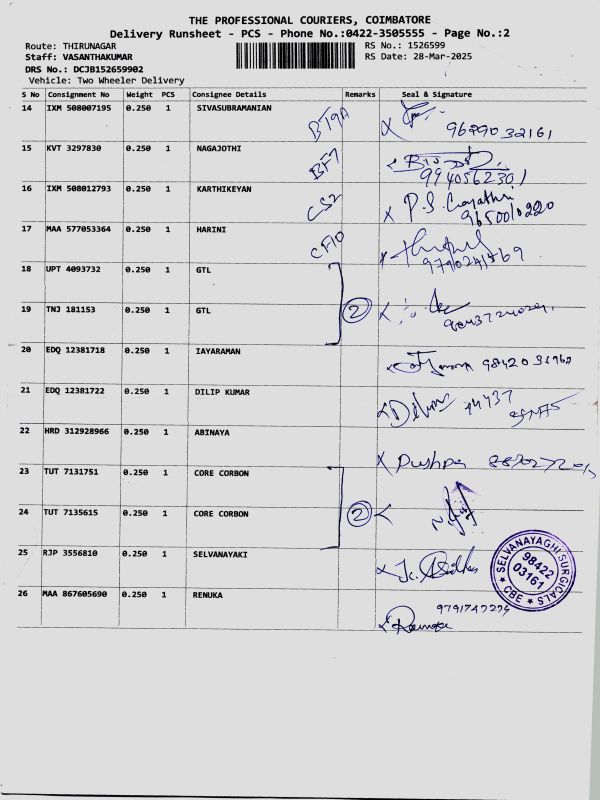 THE PROFESSIONAL COURIERS, COIMBATORE
Delivery Runsheet - PCS - Phone No.:0422-3505555 - Page No.:2
Route: THIRUNAGAR RS No.: 1526599
Staff: VASANTHAKUMAR RS Date: 28-Mar-2025
DRS No.: DCJB152659902
Vehicle: Two Wheeler Delivery
S No Consignment No Weight PCS Consignee Details Remarks Seal & Signature
14 IXM 508007195 0.250 1 SIVASUBRAMANIAN BT9A X 9629032161
15 KVT 3297830 0.250 1 NAGAJOTHI BF7 9940562301
16 IXM 508012793 0.250 1 KARTHIKEYAN CS2 X P.S. Gayathri 9650010220
17 MAA 577053364 0.250 1 HARINI CF10 X
18 UPT 4093732 0.250 1 GTL
19 TNJ 181153 0.250 1 GTL 2
20 EDQ 12381718 0.250 1 IAYARAMAN
21 EDQ 12381722 0.250 1 DILIP KUMAR
22 HRD 312928966 0.250 1 ABINAYA X Pushpa
23 TUT 7131751 0.250 1 CORE CORBON
24 TUT 7135615 0.250 1 CORE CORBON 2
25 RJP 3556810 0.250 1 SELVANAYAKI
SELVANAYAGHI SURGICALS
98422
03161
★ CBE ★
26 MAA 867605690 0.250 1 RENUKA